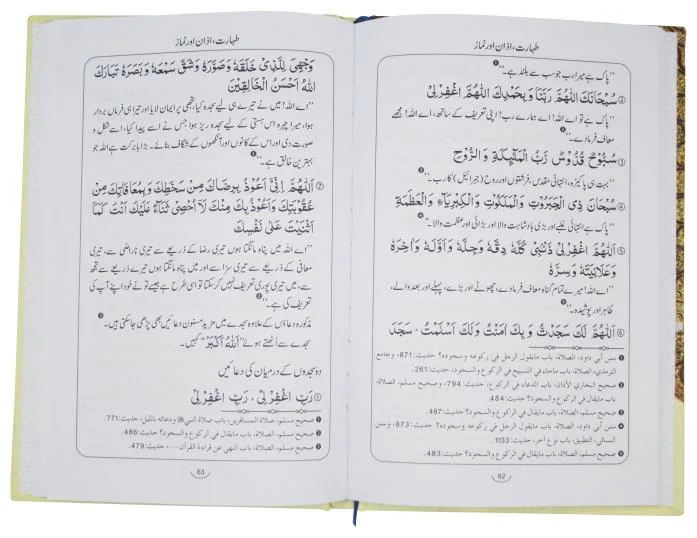 طہارت، اذان اور نماز
"پاک ہے میرا رب جو سب سے بلند ہے۔"
② سُبْحَانَكَ اللّٰهُمَّ رَبَّنَا وَبِحَمْدِكَ اللّٰهُمَّ اغْفِرْلِيْ
"پاک ہے تو اے اللہ! اے ہمارے رب! اپنی تعریف کے ساتھ، اے اللہ! مجھے
معاف فرما دے۔"
③ سُبُّوْحٌ قُدُّوْسٌ رَبُّ الْمَلٰٓئِكَةِ وَ الرُّوْحِ
"بہت ہی پاکیزہ، انتہائی مقدس، فرشتوں اور روح (جبرائیل) کا رب۔"
④ سُبْحَانَ ذِي الْجَبَرُوْتِ وَ الْمَلَكُوْتِ وَ الْكِبْرِيَآءِ وَ الْعَظَمَةِ
"پاک ہے انتہائی غلبے اور بڑی بادشاہت والا اور بڑائی اور عظمت والا۔"
⑤ اَللّٰهُمَّ اغْفِرْلِيْ ذَنْبِيْ كُلَّهٗ دِقَّهٗ وَ جِلَّهٗ وَ اَوَّلَهٗ وَ اٰخِرَهٗ
وَ عَلَانِيَتَهٗ وَ سِرَّهٗ
"اے اللہ! میرے تمام گناہ معاف فرما دے، چھوٹے اور بڑے، پہلے اور بعد والے،
ظاہر اور پوشیدہ۔"
⑥ اَللّٰهُمَّ لَكَ سَجَدْتُّ وَ بِكَ اٰمَنْتُ وَ لَكَ اَسْلَمْتُ، سَجَدَ
1 سنن أبي داود، الصلاة، باب مايقول الرجل في ركوعه وسجوده؟ حديث:871، وجامع
الترمذي، الصلاة، باب ماجاء في التسبيح في الركوع والسجود، حديث:261.
2 صحيح البخاري، الأذان، باب الدعاء في الركوع، حديث: 794، وصحيح مسلم، الصلاة،
باب مايقال في الركوع والسجود؟ حديث:484.
3 صحيح مسلم، الصلاة، باب مايقال في الركوع والسجود؟ حديث:487.
4 سنن أبي داود، الصلاة، باب مايقول الرجل في ركوعه وسجوده؟ حديث:873، وسنن
النسائي، التطبيق، باب نوع آخر، حديث:1133.
5 صحيح مسلم، الصلاة، باب مايقال في الركوع والسجود؟ حديث:483.
62
طہارت، اذان اور نماز
وَجْهِيَ لِلَّذِيْ خَلَقَهٗ وَ صَوَّرَهٗ وَ شَقَّ سَمْعَهٗ وَ بَصَرَهٗ تَبَارَكَ
اللّٰهُ اَحْسَنُ الْخَالِقِيْنَ
"اے اللہ! میں نے تیرے ہی لیے سجدہ کیا، تجھی پر ایمان لایا اور تیرا ہی فرماں بردار
ہوا، میرا چہرہ اس ہستی کے لیے سجدہ ریز ہوا جس نے اسے پیدا کیا، اسے شکل و
صورت دی اور اس کے کانوں اور آنکھوں کے شگاف بنائے۔ بڑا بابرکت ہے اللہ جو
بہترین خالق ہے۔"
⑦ اَللّٰهُمَّ اِنِّيْ اَعُوْذُ بِرِضَاكَ مِنْ سَخَطِكَ وَ بِمُعَافَاتِكَ مِنْ
عُقُوْبَتِكَ وَ اَعُوْذُ بِكَ مِنْكَ لَآ اُحْصِيْ ثَنَآءً عَلَيْكَ اَنْتَ كَمَآ
اَثْنَيْتَ عَلٰى نَفْسِكَ
"اے اللہ میں پناہ مانگتا ہوں تیری رضا کے ذریعے سے تیری ناراضی سے، تیری
معافی کے ذریعے سے تیری سزا سے اور میں پناہ مانگتا ہوں تیرے ذریعے سے تجھ
سے، میں تیری پوری تعریف نہیں کر سکتا تو اسی طرح ہے جیسے تو نے خود اپنے آپ کی
تعریف کی ہے۔"
مذکورہ دعاؤں کے علاوہ سجدے میں مزید مسنون دعائیں بھی پڑھی جا سکتی ہیں۔
سجدے سے اُٹھتے ہوئے "اَللّٰهُ اَكْبَرُ" کہیں۔
دو سجدوں کے درمیان کی دعائیں
① رَبِّ اغْفِرْلِيْ، رَبِّ اغْفِرْلِيْ
1 صحيح مسلم، صلاة المسافرين، باب صلاة النبي ﷺ ودعائه بالليل، حديث:771.
2 صحيح مسلم، الصلاة، باب مايقال في الركوع والسجود؟ حديث:486.
3 صحيح مسلم، الصلاة، باب النهي عن قراءة القرآن ...، حديث:479.
63